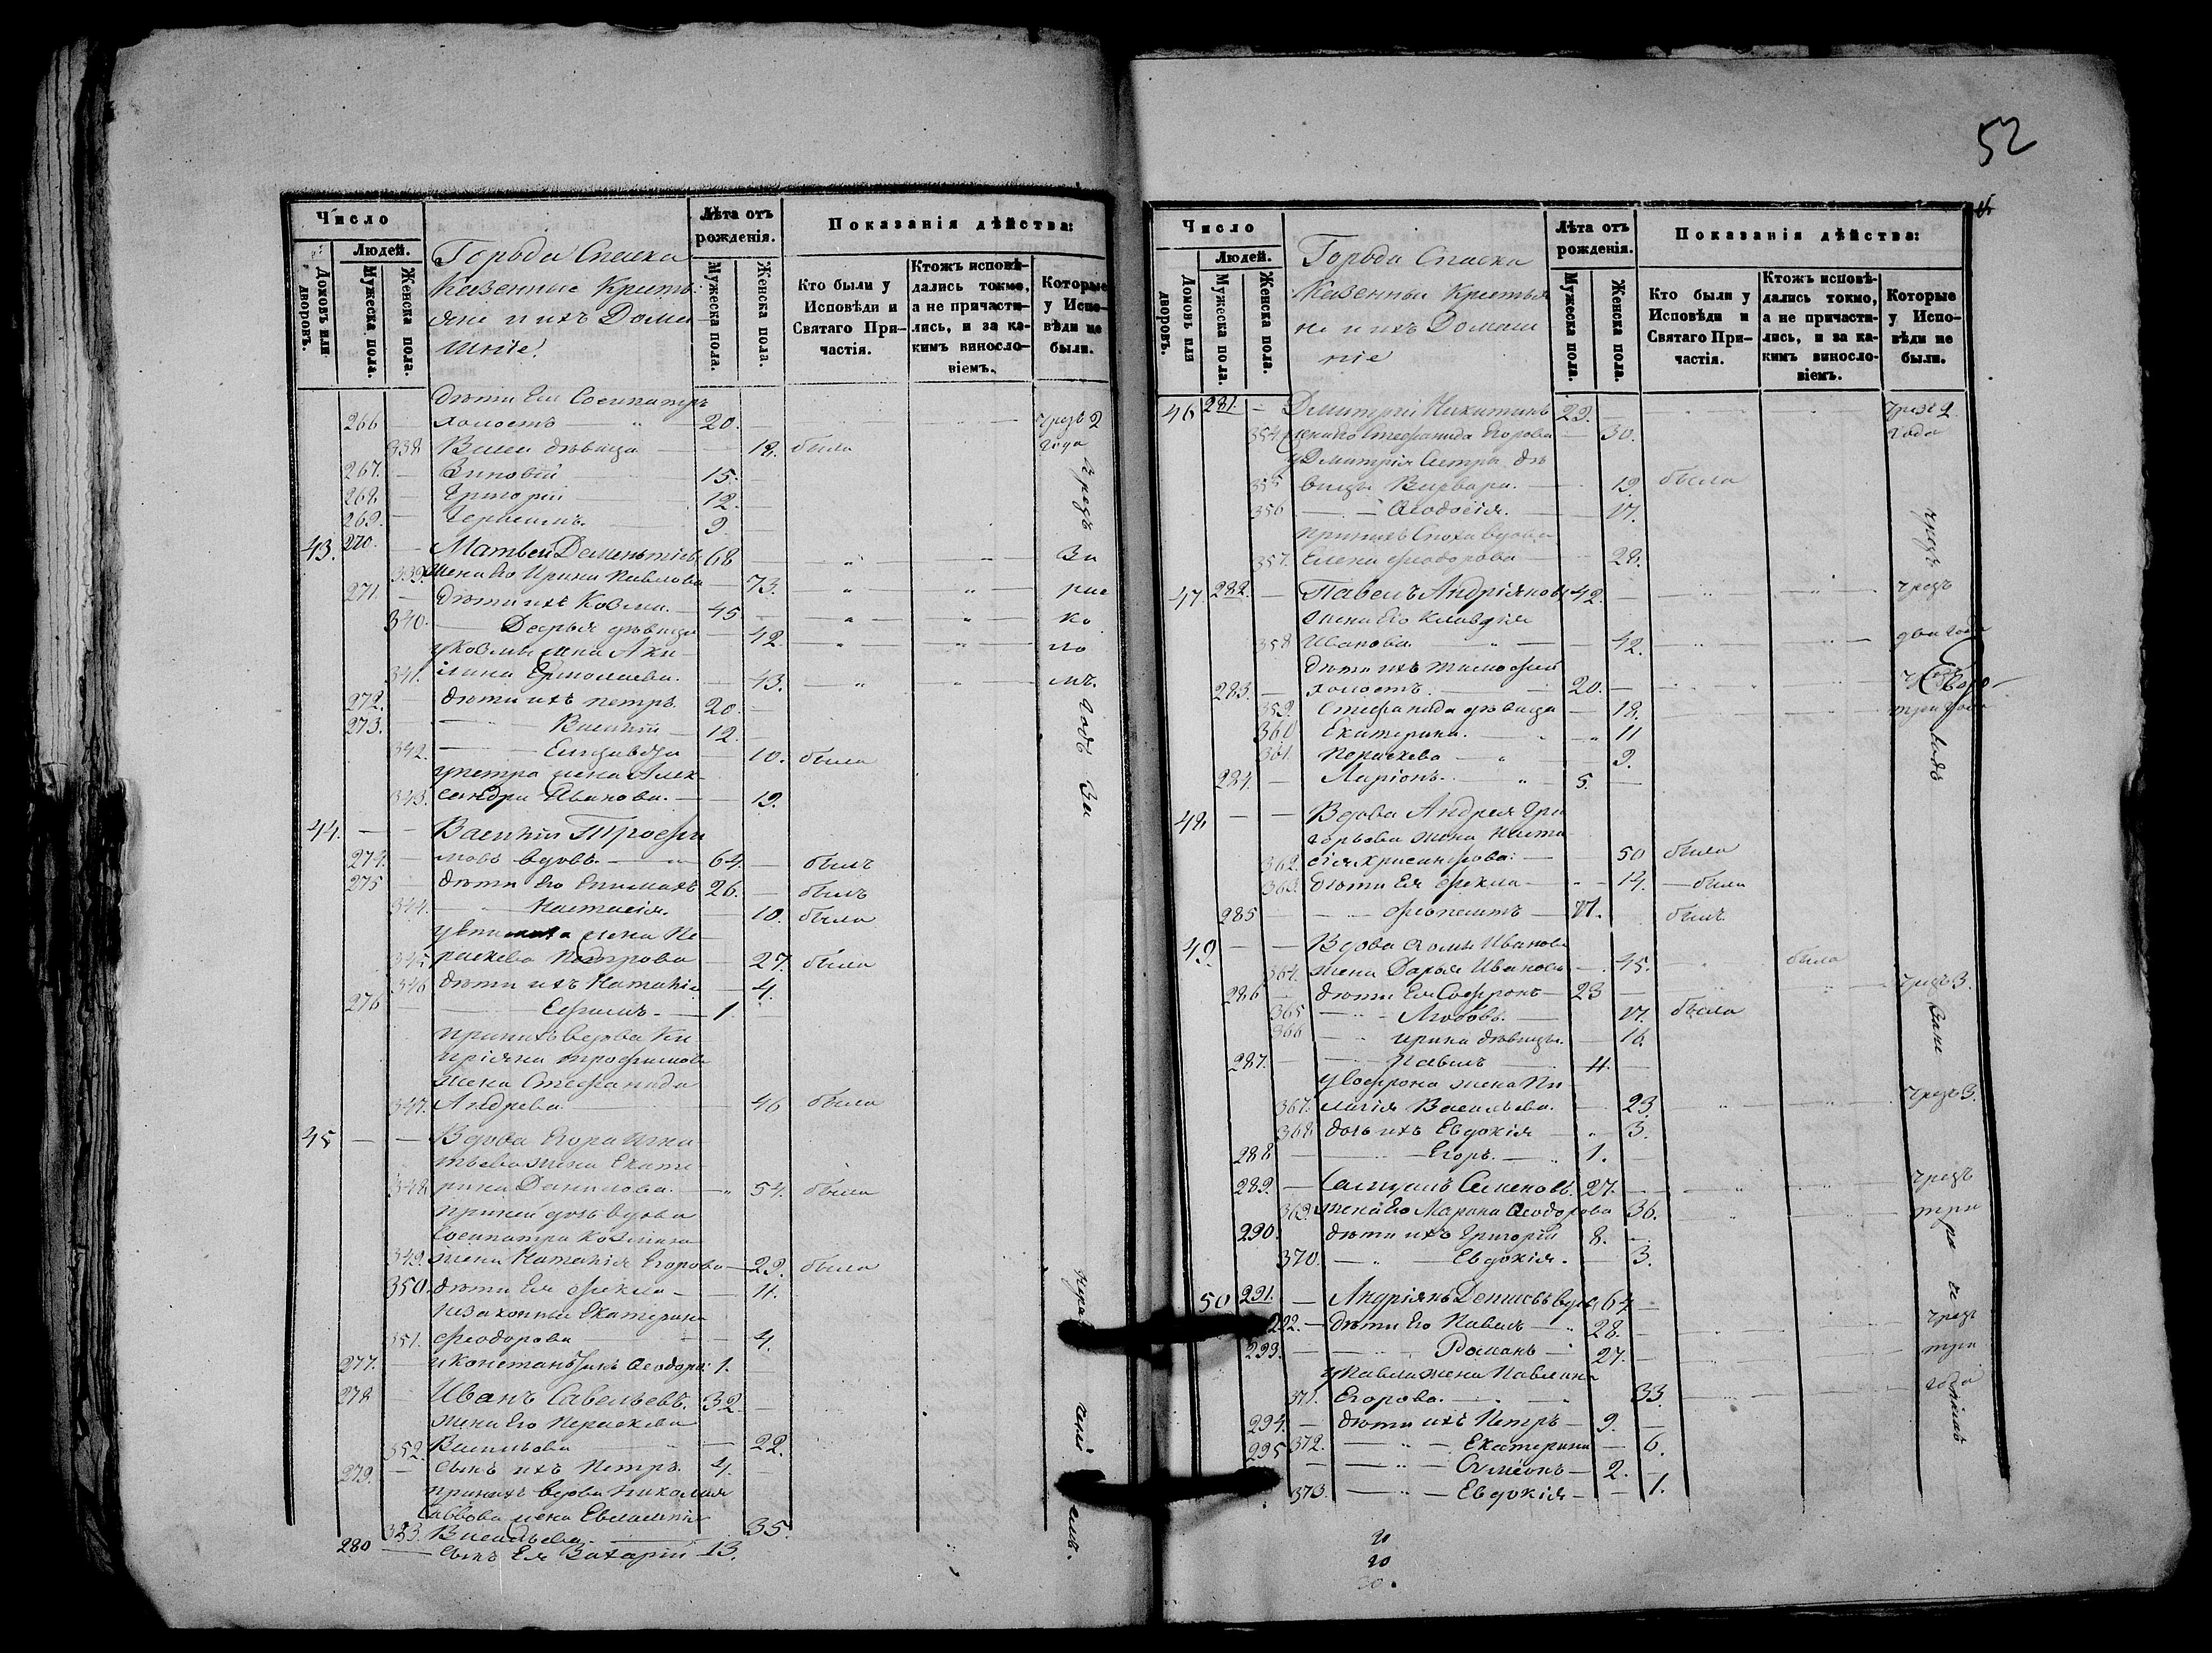 Число
Людей.
Домовъ или дворовъ.
Мужеска пола.
Женска пола.
Города Спаска
Казенные Кресть-
яне и ихъ Дома-
шніе.
Лѣта отъ рожденія.
Мужеска пола.
Женска пола.
Показанія дѣйства:
Кто были у Исповѣди и Святаго При-частія.
Ктожъ исповѣ-дались токмо, а не причасти-лись, и за ка-кимъ винosло-віемъ.
Которые у Испо-вѣди не были.
дѣти Ея Сосипатръ
266 холостъ 20. чрезъ 2
338 девица 18. была года
267. Зиновій 15.
268 Григорій 12.
269. 9
43. 270. Матвей Дементіевъ 68 За
339. жена Его Ирина Павлова 73. рас
271. дѣти ихъ Козма. 45 ко
340. Дарья девица 42. ло
у Козмы жена Аки-
341. лина Ермолаева. 43. мъ.
272. дѣти ихъ Петръ. 20.
273. Василій 12.
342. Елизавета 10. была
у Петра жена Алек-
343. сандра Иванова. 19.
44. Василій Трофи
274. мовъ вдовъ. 64. былъ
275 дѣти Его Епимахъ 26. былъ
344. Настасія. 10. была
у Епимаха жена Па-
345 раскева Петрова 27. была
346 дѣти ихъ Наталія 4.
276 Ефимъ. 1
при нихъ вдова Ки
пріяна Трофимова
жена Стефанида
347. Андреева 46 была
45 Вдова Егора Игна
тьева жена Екате-
348 рина Данилова. 54. была
при ней дочь вдова
Сосипатра Козмина
349. жена Наталія Егорова 29. была
350. дѣти Ея Фекла 11.
незаконныя Екатерина
351. Феодорова 4.
277. и Константинъ Феодоръ 1.
278 Иванъ Савельевъ. 32.
жена Его Параскева
352. Васильева 22.
279. сынъ ихъ Петръ. 4.
при нихъ вдова Николая
Саввова жена Евлампія
353. Васильева. 35.
280 сынъ Ея Захарій 13.
52
Число
Людей.
Домовъ или дворовъ.
Мужеска пола.
Женска пола.
Города Спаска
Казенныя Крестья
не и ихъ Домаш
ніе
Лѣта отъ рожденія.
Мужеска пола.
Женска пола.
Показанія дѣйства:
Кто были у Исповѣди и Святаго При-частія.
Ктожъ исповѣ-дались токмо, а не причасти-лись, и за ка-кимъ винosло-віемъ.
Которые у Испо-вѣди не были.
46 281. Дмитрій Никитинъ 29. чрезъ 2
354 жена Его Стефанида Егорова 30. года
у Дмитрія сестры дѣ
355 вицы Варвара. 19. была
356 Феодосія. 17.
при нихъ сноха вдова
357. Елена Феодорова 28.
47 282. Павелъ Андріяновъ 42. чрезъ
жена Его Клавдія
358 Иванова. 42. два года
дѣти ихъ Тимофей
283. холостъ. 20.
359. Стефанида девица 18. три года
360 Екатерина. 11
361. Параскева 9.
284. Ларіонъ. 5.
48 Вдова Андрея Гри
горьева жена Наста
362. сія Хрисанфова: 50 была
363. дѣти Ея Фекла 14. была
285 Феопемптъ 17. былъ
49. Вдова Фомы Иванова
364. жена Дарья Иванова 45. была
286 дѣти Ея Софронъ 23 чрезъ 3.
365 Любовь. 17. была
366 Ирина девицы. 16.
287. Павелъ 11.
у Софрона жена Пи
367. Васильева. 23. чрезъ 3.
368 дочь ихъ Евдокія 3.
288 Егоръ. 1.
289. Семеновъ. 27. чрезъ
369. жена Его Марина Феодорова 36. три
290. дѣти ихъ Григорій 8.
370. Евдокія. 3.
50 291. Андріянъ Денисовъ вдовъ 64.
292. дѣти Его Павелъ 28. чрезъ
293. Романъ 27. три
у Павла жена Павлина
371. Егорова. 33. года
294. дѣти ихъ Петръ 9.
372. Екатерина 6.
295 Симеонъ 2.
373. Евдокія 1.
20
20